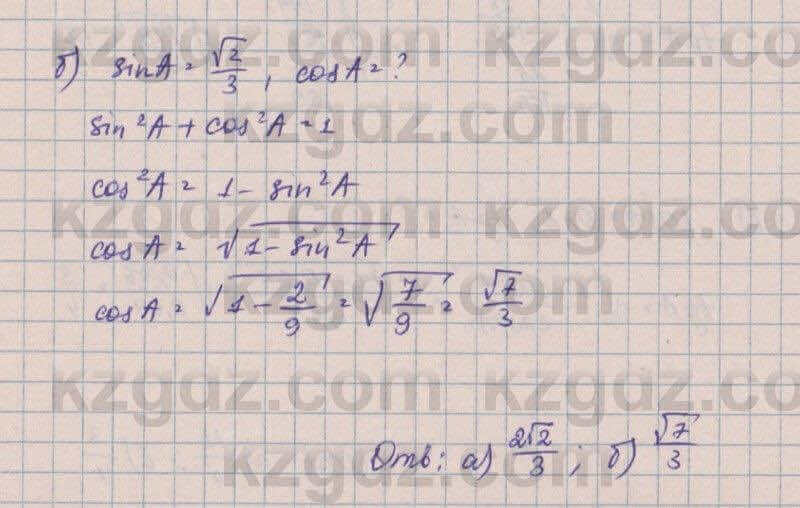 б) sinA = √2/3, cosA = ?
sin²A + cos²A = 1
cos²A = 1 - sin²A
cosA = √(1 - sin²A)
cosA = √(1 - 2/9) = √(7/9) = √7/3
Отв: а) 2√2/3; б) √7/3
kzgdz.com
kzgdz.com
kzgdz.com
kzgdz.com
kzgdz.com
kzgdz.com
kzgdz.com
kzgdz.com